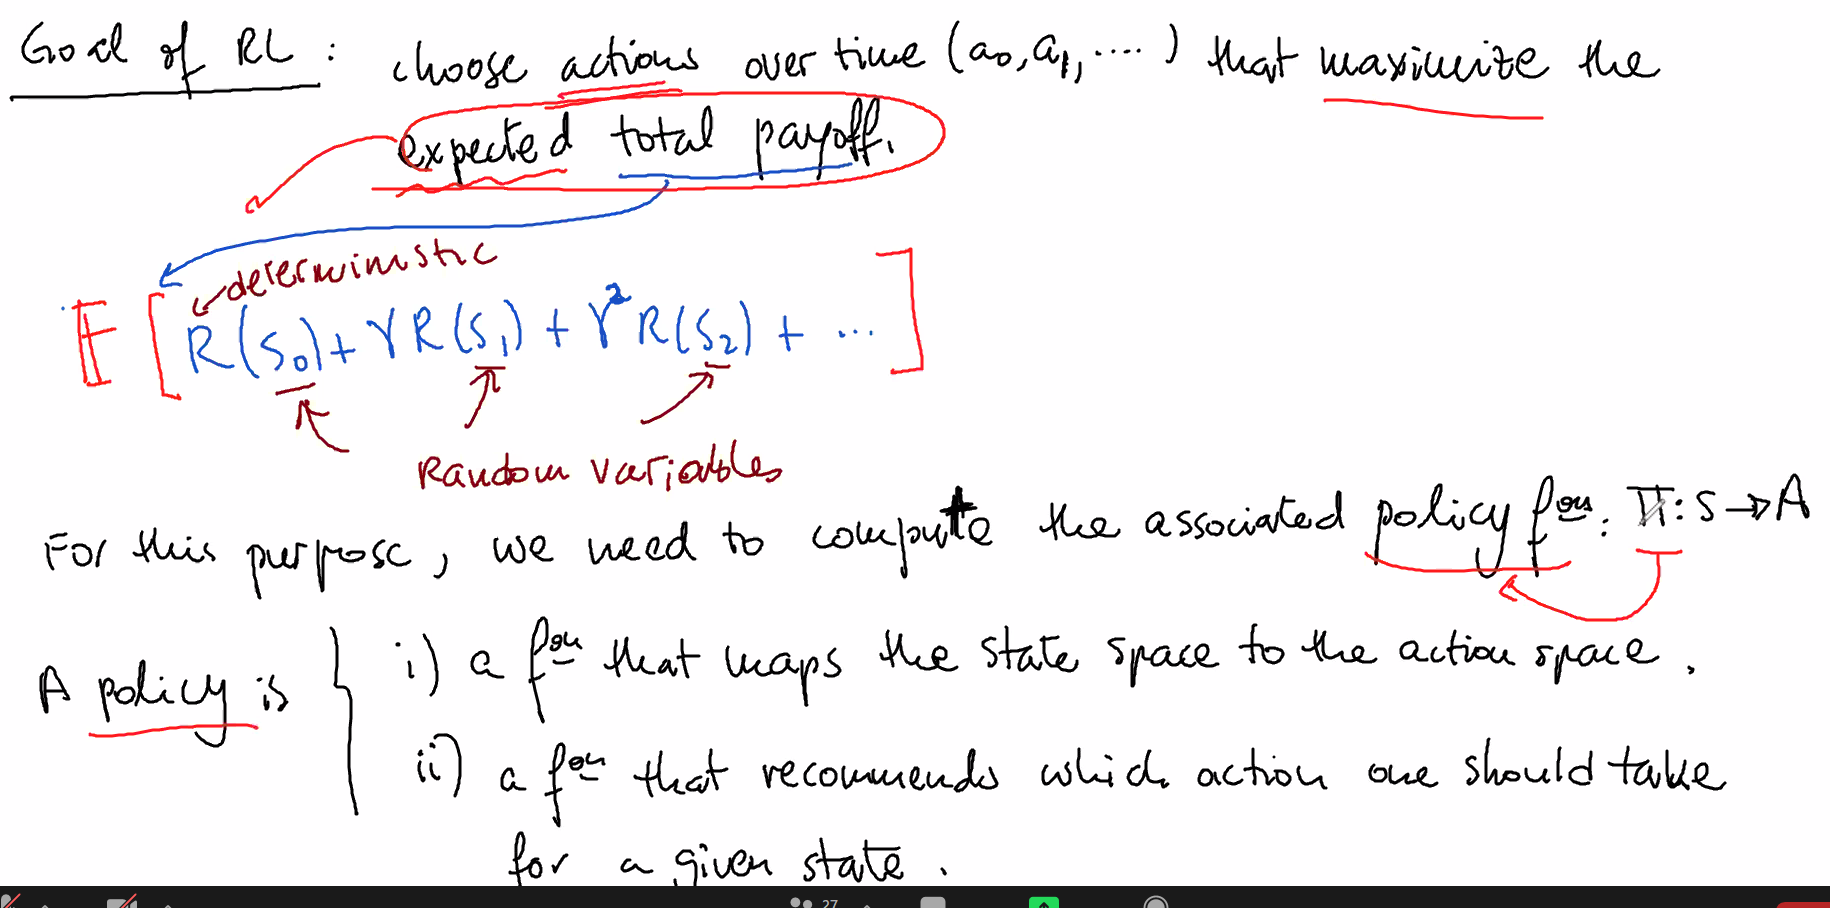 Goal of RL : choose actions over time (a₀, a₁, ....) that maximize the
expected total payoff.
deterministic
E [ R(s₀) + γR(s₁) + γ²R(s₂) + ... ]
Random variables
For this purpose, we need to compute the associated policy fᵒⁿ: Π: S → A
A policy is
i) a fᵒⁿ that maps the state space to the action space.
ii) a fᵒⁿ that recommends which action one should take
for a given state.
27